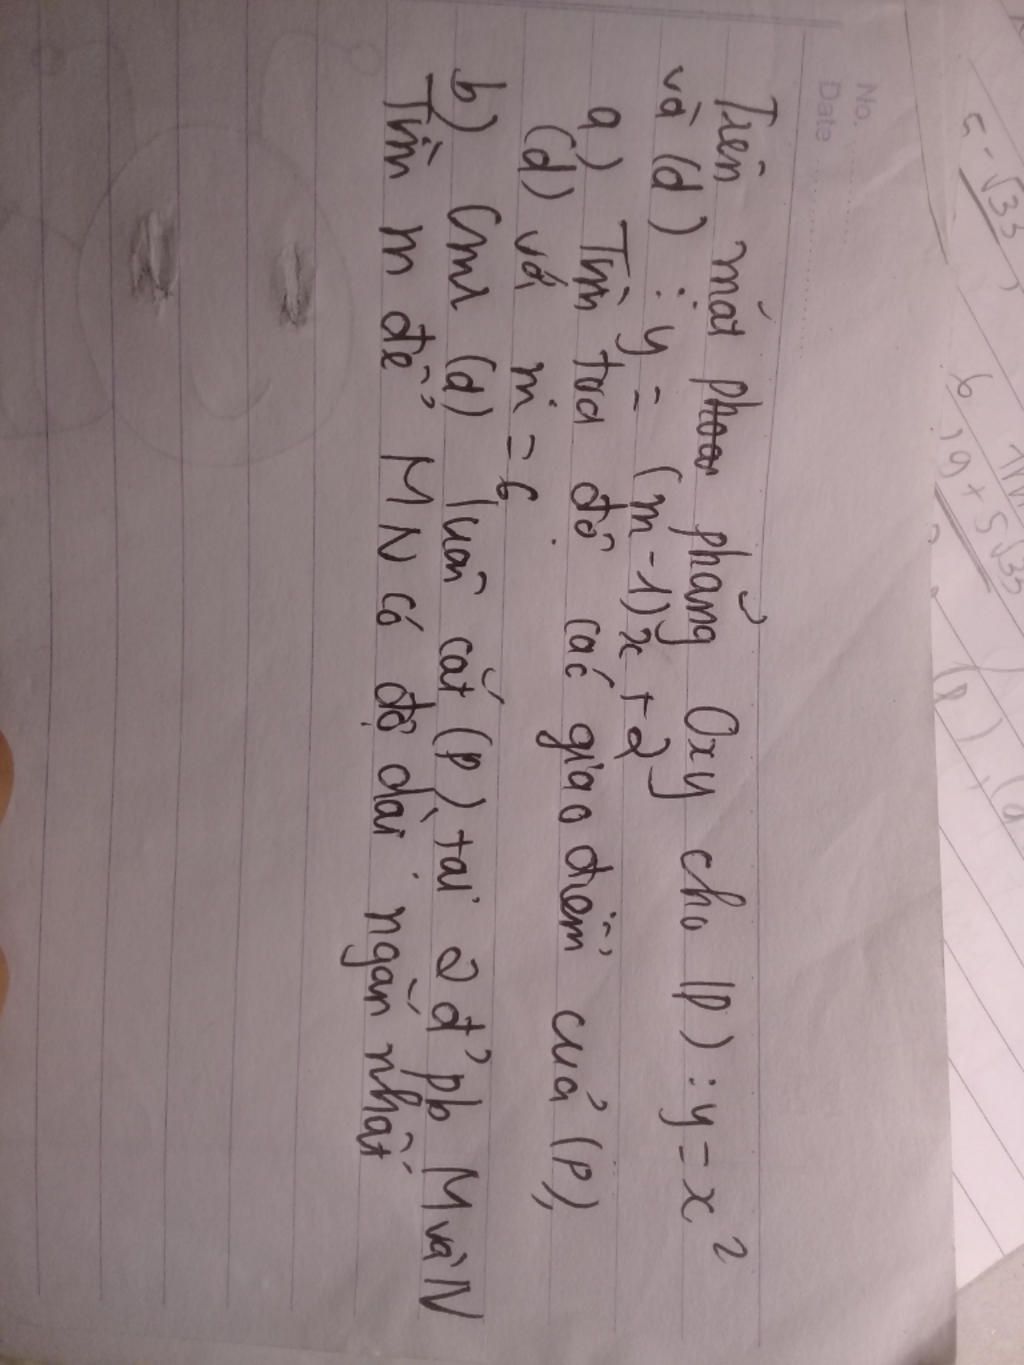 No.
Date
Trên mặt phẳng Oxy cho (P) : y = x²
và (d) : y = (m - 1)x + 2
a) Tìm toạ độ các giao điểm của (P),
(d) với m = 6
b) Cmr (d) luôn cắt (P) tại 2 đ' pb M và N
Tìm m để MN có độ dài ngắn nhất
5 - √33